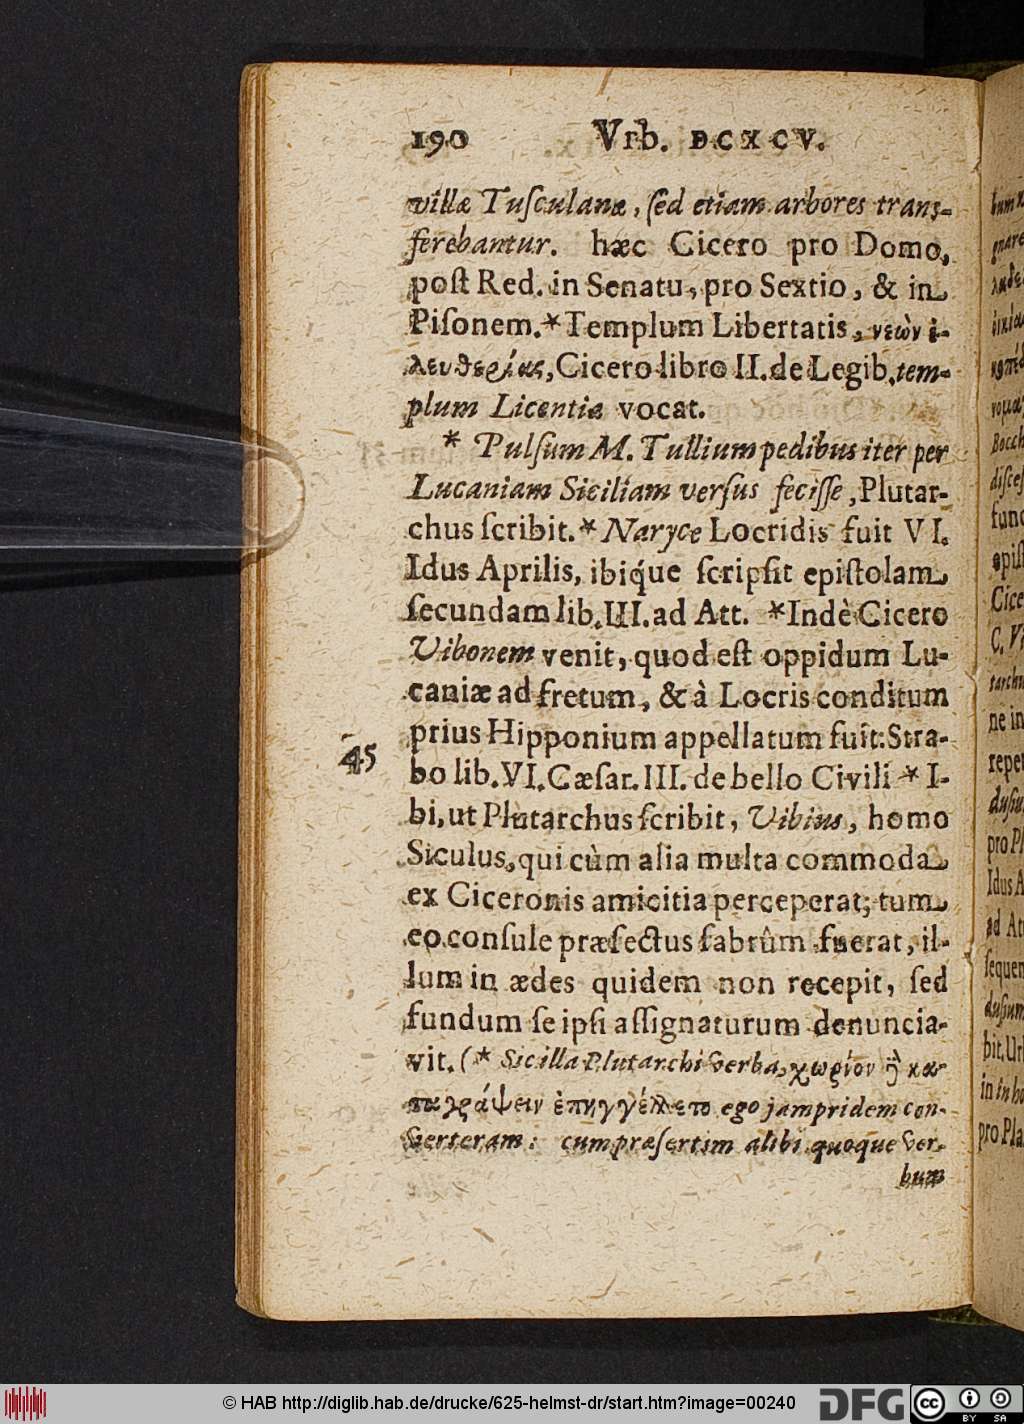 190 Vrb. DCXCV.
villæ Tuſculanæ, ſed etiam arbores transferebantur-
ferebantur. hæc Cicero pro Domo,
poſt Red. in Senatu, pro Sextio, & in
Piſonem.*Templum Libertatis, νεὼν ἐ-
λευθερίας, Cicero libro II. de Legib. tem-
plum Licentiæ vocat.
* Pulſum M. Tullium pedibus iter per
Lucaniam Siciliam verſus feciſſe, Plutar-
chus ſcribit.* Naryce Locridis fuit VI.
Idus Aprilis, ibiq́ue ſcripſit epiſtolam
ſecundam lib. III. ad Att. *Indè Cicero
Vibonem venit, quod eſt oppidum Lu-
caniæ ad fretum, & à Locris conditum
prius Hipponium appellatum fuit: Stra-
45
bo lib. VI. Cæſar. III. de bello Civili * I-
bi, ut Plutarchus ſcribit, Vibius, homo
Siculus, qui cùm alia multa commoda
ex Ciceronis amicitia perceperat; tum
eo conſule præfectus fabrûm fuerat, il-
lum in ædes quidem non recepit, ſed
fundum ſe ipſi aſſignaturum denuncia-
vit. (* Sic illa Plutarchi verba, χωρίον ϗ̀ κα-
ταγράψειν ἐπηγγέλλετο ego jampridem con-
verteram: cum præſertim alibi quoque ver-
bum
© HAB http://diglib.hab.de/drucke/625-helmst-dr/start.htm?image=00240
DFG
cc
BY SA